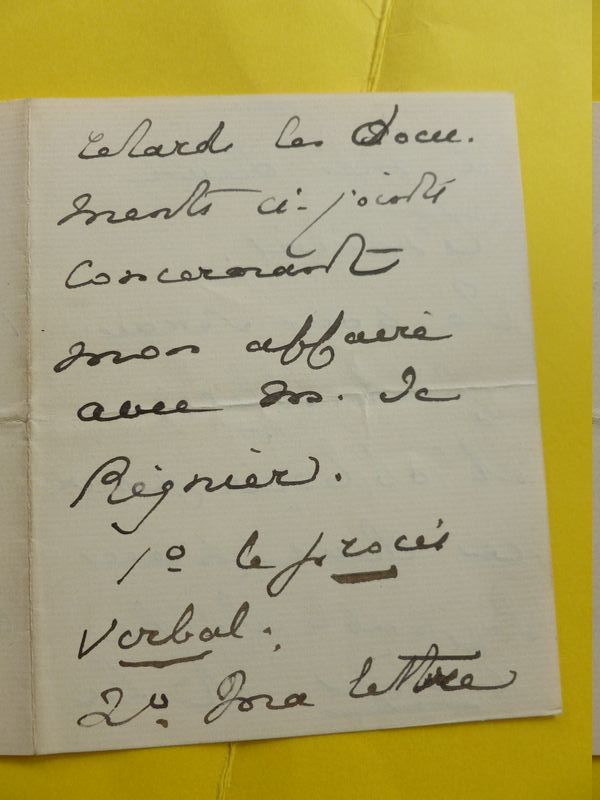 retard les docu.
ments ci-joints
concernant
mon affaire
avec M. de
Régnier.
1º le procès
verbal.
2º ma lettre